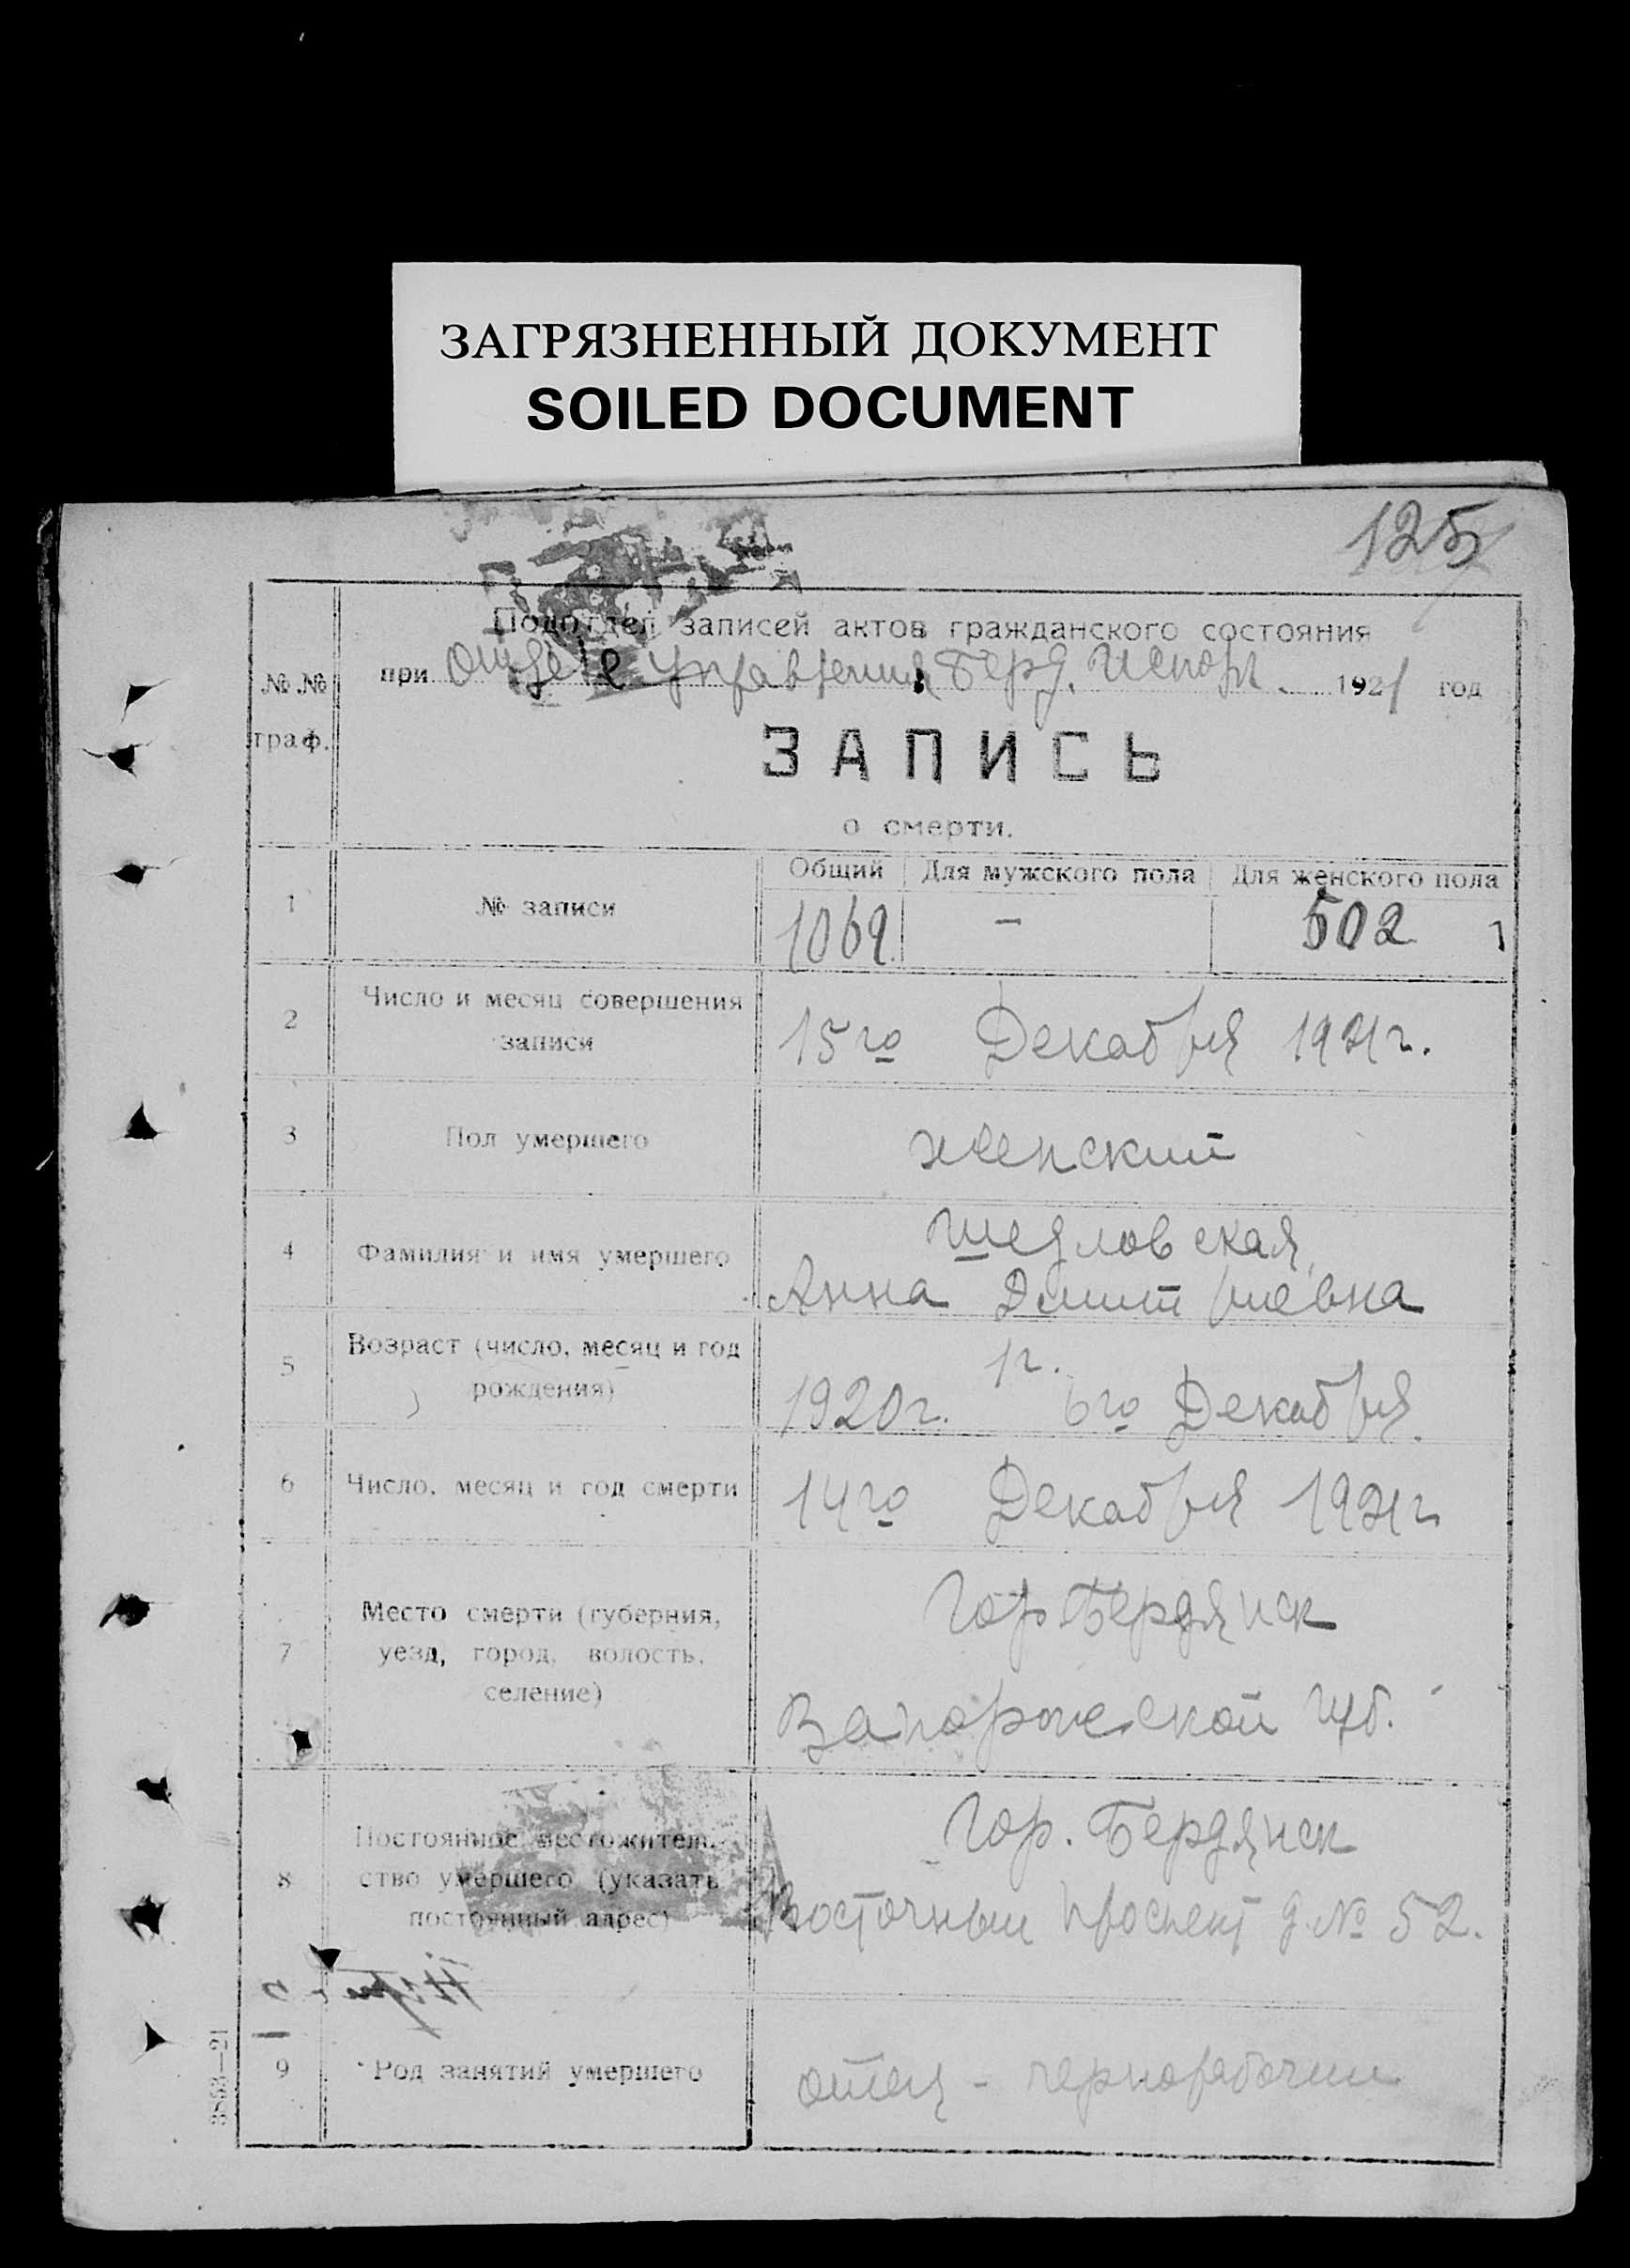 ЗАГРЯЗНЕННЫЙ ДОКУМЕНТ
SOILED DOCUMENT
125
№ №
граф.
Подотдел записей актов гражданского состояния
при Отделе Управления Берд. Исполк. 1921 год
ЗАПИСЬ
о смерти.
1
№ записи
Общий Для мужского пола Для женского пола
1069 — 502
2
Число и месяц совершения
записи
15го Декабря 1921г.
3
Пол умершего
женский
4
Фамилия и имя умершего
Шедловская,
Анна Дмитриевна
5
Возраст (число, месяц и год
рождения)
1г.
1920г. 6го Декабря.
6
Число, месяц и год смерти
14го Декабря 1921г.
7
Место смерти (губерния,
уезд, город, волость,
селение)
Гор. Бердянск
Запорожской губ.
8
Постоянное местожитель-
ство умершего (указать
постоянный адрес)
Гор. Бердянск
Восточный проспект д. № 52.
9
Род занятий умершего
отец - чернорабочий
3863—21